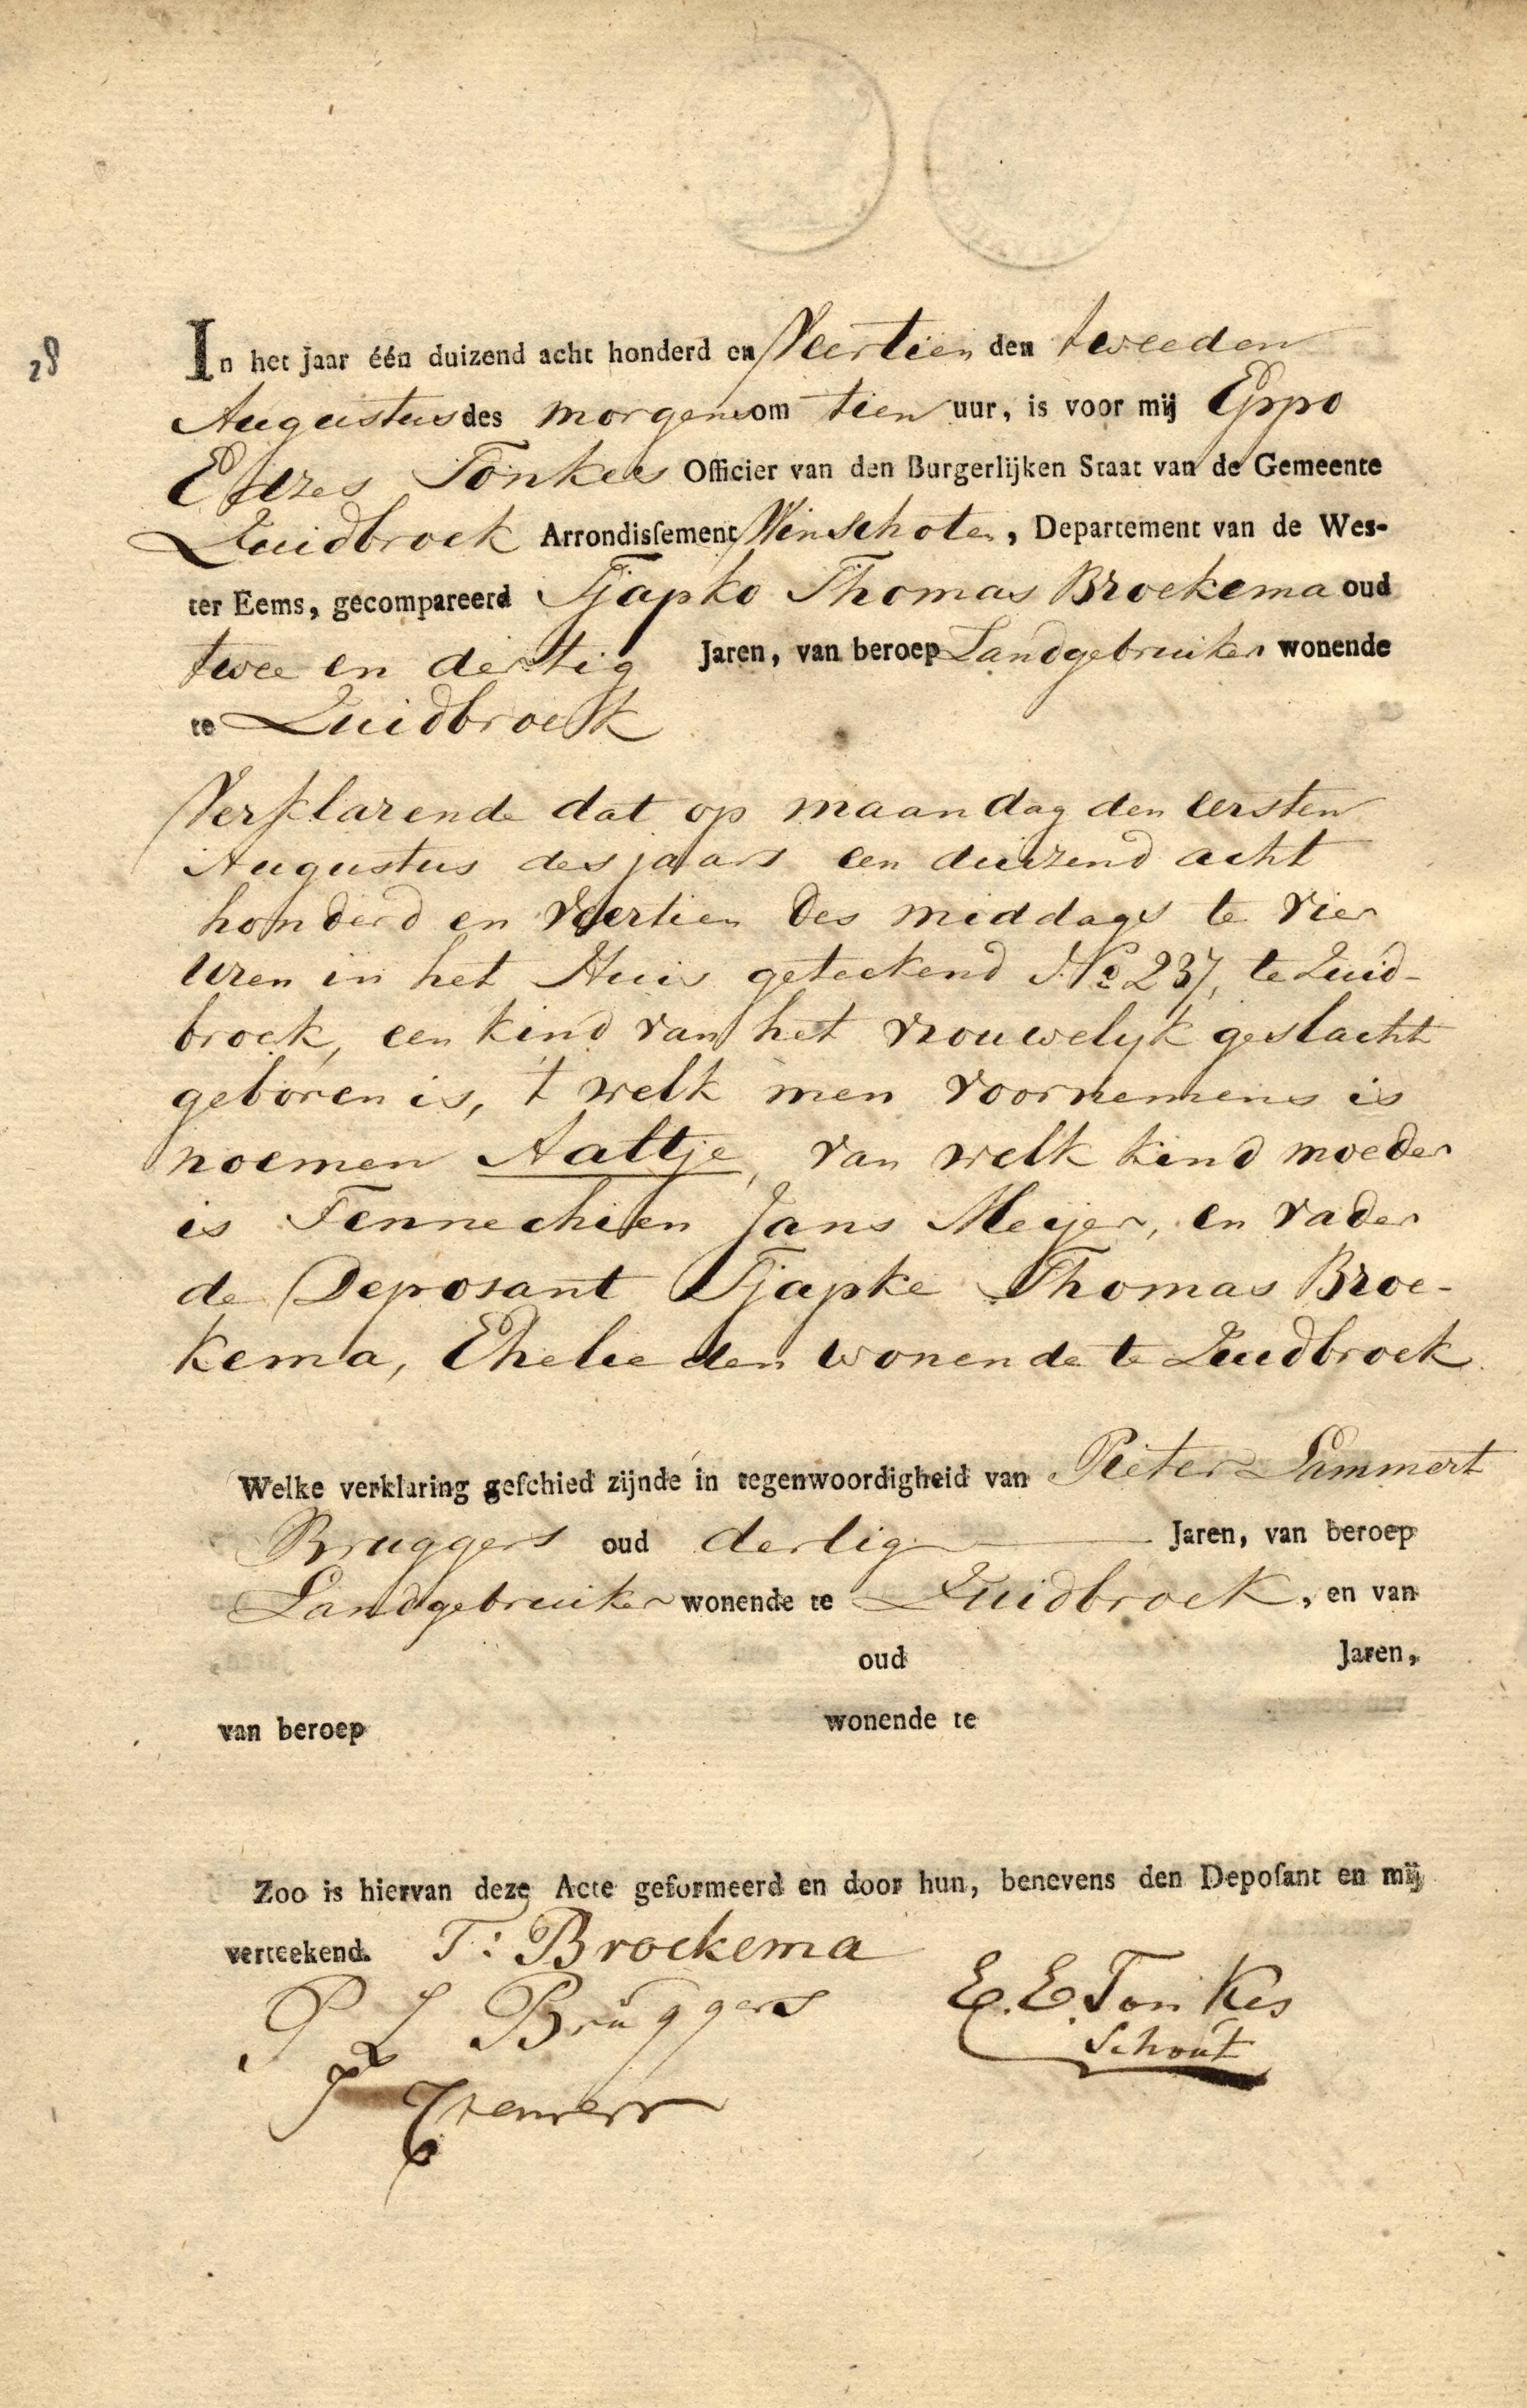 28
In het jaar één duizend acht honderd en Veertien den tweeden
Augustus des morgens om tien uur, is voor mij Eppo
Edzes Tonkes Officier van den Burgerlijken Staat van de Gemeente
Zuidbroek Arrondisſement Winschoten, Departement van de Wes-
ter Eems, gecompareerd Tjapko Thomas Broekema oud
twee en dertig Jaren, van beroep Landgebruiker wonende
te Zuidbroek
Verklarende dat op maandag den eersten
Augustus des jaars een duizend acht
honderd en veertien des middags te vier
uren in het Huis geteekend No 237, te Zuid-
broek, een kind van het vrouwelyk geslacht
geboren is, 't welk men voornemens is
noemen Aaltje, van welk kind moeder
is Fennechien Jans Meijer, en vader
de Deposant Tjapke Thomas Broe-
kema, Ehelieden wonende te Zuidbroek
Welke verklaring geſchied zijnde in tegenwoordigheid van Pieter Lammert
Bruggers oud dertig Jaren, van beroep
Landgebruiker wonende te Zuidbroek, en van
oud Jaren,
van beroep wonende te
Zoo is hiervan deze Acte geformeerd en door hun, benevens den Depoſant en mij
verteekend. T: Broekema
P L Bruggers E. E. Tonkes
Schout